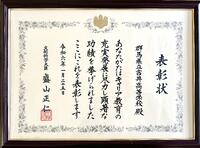 表彰状
群馬県立吉井高等学校 殿
あなたがたはキャリア教育の
充実発展に尽力し顕著な
功績を挙げられました
ここにこれを表彰します
令和六年一月二十五日
文部科学大臣
盛山正仁